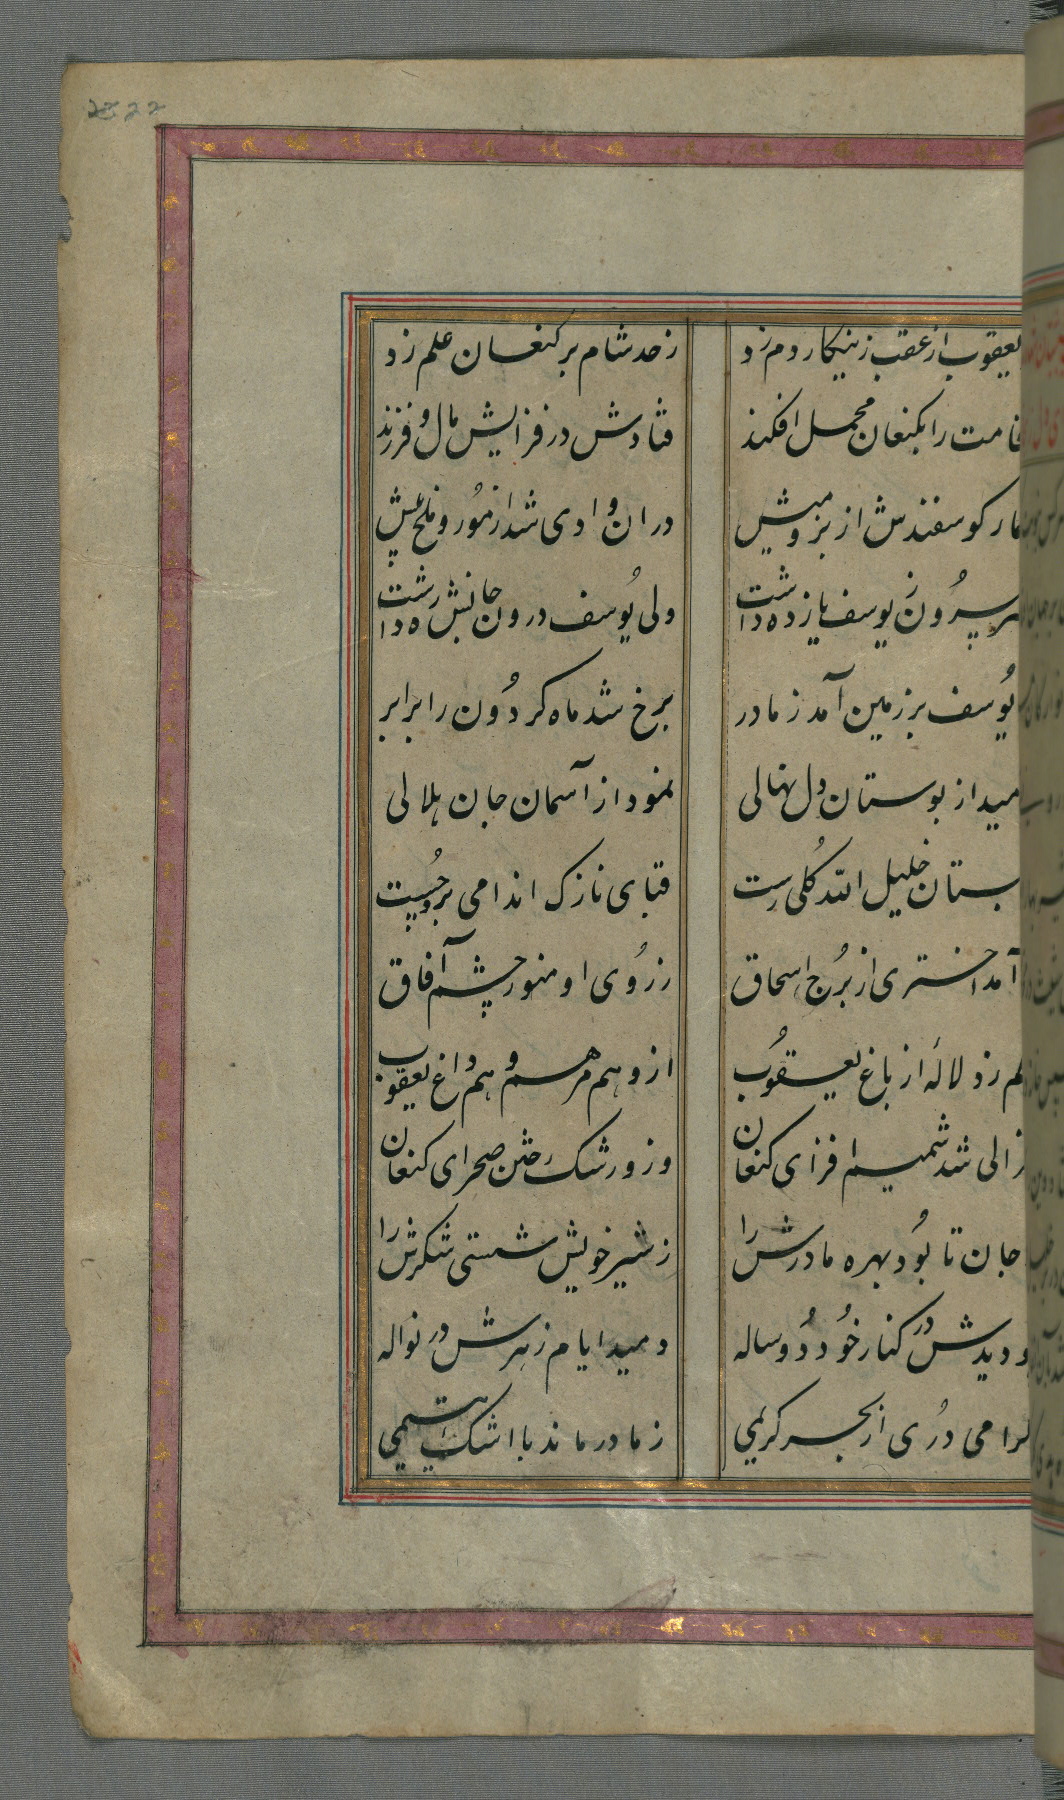 یعقوب از عقب زینکار دم زد زحد شام بر کنعان علم زد
اقامت را بکنعان محمل افکند فتادش در فزایش مال و فرزند
شمار کوسفندش از بز و میش در ان وادی شد از مور و ملخ بیش
پسر بیرون ز یوسف یازده داشت ولی یوسف درون جانش ره داشت
یوسف بر زمین آمد ز مادر برخ شد ماه کردون را برابر
دمید از بوستان دل نهالی نمود از آسمان جان هلالی
بستان خلیل الله کلی رست قبای نازک اندامی برو چست
آمد اختری از برج اسحاق ز روی او منور چشم آفاق
علم زد لاله از باغ یعقوب ازو هم مرهم و هم داغ یعقوب
غزالی شد شمیم افزای کنعان وزو رشک ختن صحرای کنعان
جان تا بود بهره مادرش را ز شیر خویش شستی شکرش را
و دیدش در کنار خود دو ساله دمید ایام زهرش در نواله
کرامی دری از بحر کریمی ز مادر ماند با اشک یتیمی